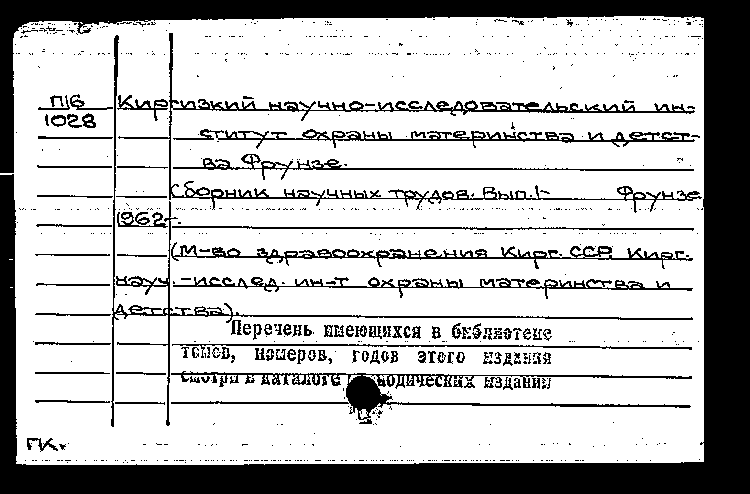 П16 Киргизкий научно-исследовательский ин-
1028
ститут охраны материнства и детст-
ва Фрунзе.
Сборник научных трудов. Вып.1- Фрунзе
1962-.
(М-во здравоохранения Кирг. ССР. Кирг.
науч.-исслед. ин-т охраны материнства и
детства).
Перечень имеющихся в библиотеке
томов, номеров, годов этого издания
смотри в каталоге периодических изданий
ГК.